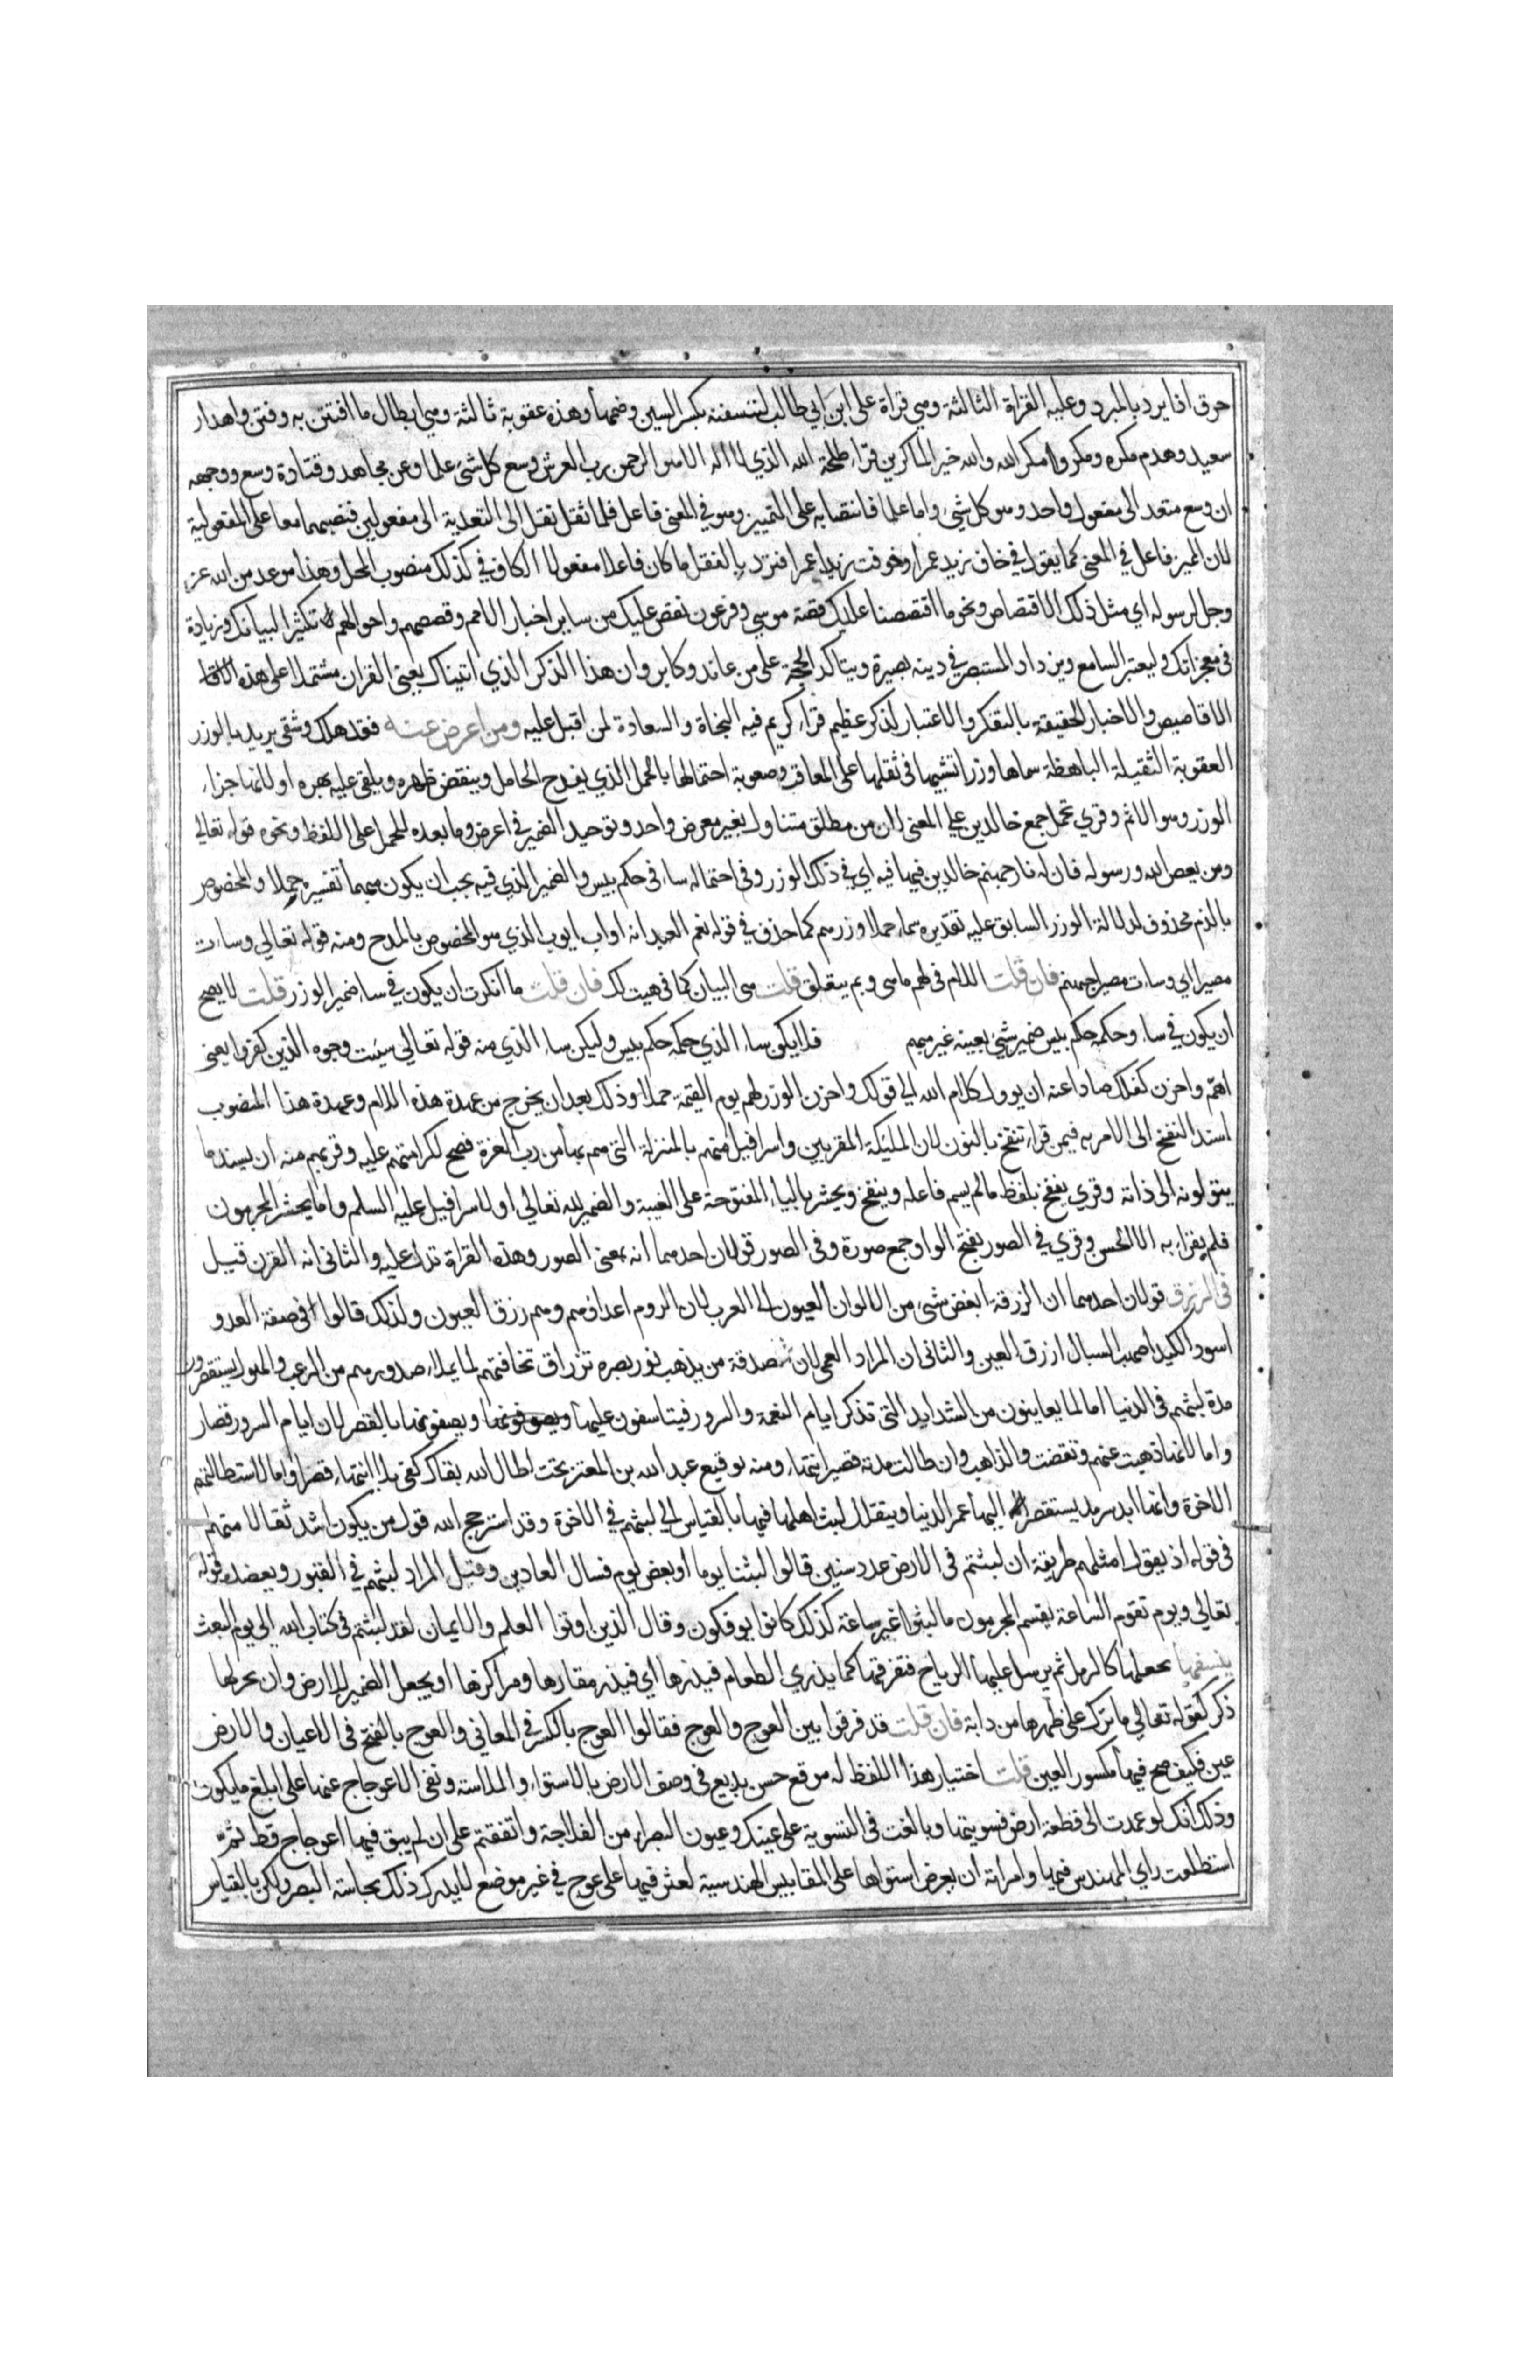 حرق اذا برد بالمبرد وعليه القراة الثالثة وهي قراة علي ابن ابي طالب لننسفنه بكسر السين وضمها وهذه عقوبة ثالثة وهي ابطال ما افتتن به وفتن واهدار
سعيه وهدم مكره ومكروا ومكر الله والله خير الماكرين قراء طلحة الله الذي لا اله الا هو الرحمن رب العرش وسع كل شيء علما وعن مجاهد وقتادة وسع ووجهه
ان وسع متعد الى مفعول واحد وهو كل شيء واما علما فانتصابه على التمييز وهو في المعنى فاعل فلما ثقل نقل الى التعدية الى مفعولين فنصبهما معا على المفعولية
لان المميز فاعل في المعنى كما يقول في خاف زيد عمرا وخوفت زيدا عمرا فترد بالنقل ما كان فاعلا مفعولا الكاف في كذلك منصوب المحل وهذا موعد من الله عز
وجل لرسوله اي مثل ذلك الاقتصاص ونحو ما اقتصصنا عليك قصة موسي وفرعون نقص عليك من ساير اخبار الامم وقصصهم واحوالهم تكثيرا لبيناتك وزيادة
في معجزاتك وليعتبر السامع ويزداد المستبصر في دينه بصيرة ويتاكد الحجة على من عاند وكابر وان هذا الذكر الذي اتيناك يعني القران مشتملا على هذه
الاقاصيص والاخبار الحقيقة بالتفكر والاعتبار لذكر عظيم قران كريم فيه النجاة والسعادة لمن اقبل عليه ومن اعرض عنه فقد هلك وشقي يريد بالوزر
العقوبة الثقيلة الباهظة سماها وزرا تشبيها في ثقلها على المعاقب وصعوبة احتمالها بالحمل الذي يفدح الحامل وينقض ظهره ويلقي عليه بهره او لانها جزاء
الوزر وهو الاثم وقري تحمل جمع خالدين علي المعني لان من مطلق متناول بغير معرض واحد وتوحيد الضمير في اعرض وما بعده للحمل على اللفظ ونحوه قوله تعالي
ومن يعص الله ورسوله فان له نار جهنم خالدين فيها فيه اي في ذلك الوزر وفي احتماله ساء في حكم بيس والضمير الذي فيه يجب ان يكون مبهما تفسيره حملا والمخصوص
بالذم محذوف لدلالة الوزر السابق عليه تقديره ساء حملا وزرهم كما حذف في قوله نعم العبد انه اواب ايوب الذي هو المخصوص بالمدح ومنه قوله تعالي وساءت
مصيرا اي وساءت مصيرا جهنم فان قلت اللام في لهم ما هي وبم يتعلق قلت هي البيان كما في هيت لك فان قلت ما انكرت ان يكون في ساء ضمير الوزر قلت لا يصح
ان يكون في ساء وحكمه حكم بيس ضمير شيء بعينه غير مبهم فلا يكن ساء الذي حكمه حكم بيس وليكن ساء الذي منه قوله تعالي سيئت وجوه الذين كفروا يعني
اهم واحزن كفاك صادا عنه ان يوول كلام الله الي قولك واحزن الوزر لهم يوم القيمة حملا وذلك بعد ان يخرج من عهدة هذه اللام وعهدة هذا المنصوب
اسند النفخ الى الامر به فيمن قراء ننفخ بالنون لان المليكة المقربين واسرافيل منهم بالمنزلة التي هم بها من رب العزة فصح لكرامتهم عليه وقربهم منه ان يسند ما
يتولونه الى ذاته وقري ينفخ بلفظ ما لم يسم فاعله وينفخ ويحشر بالياء المفتوحة على الغيبة والضمير لله تعالي او لاسرافيل عليه السلم واما يحشر المجرمون
فلم يقراء به الا الحسن وقري في الصور بفتح الواو جمع صورة وفي الصور قولان احدهما انه بمعنى الصور وهذه القراة تدل عليه والثاني انه القرن قيل
في الزرق قولان احدهما ان الزرقة ابغض شيء من الوان العيون الى العرب لان الروم اعداؤهم وهم زرق العيون ولذلك قالوا في صفة العدو
اسود الكبد اصهب السبال ازرق العين والثاني ان المراد العمي لان حدقة من يذهب نور بصره تزراق تخافتهم لما يملاء صدورهم من الرعب والهول يستقصرون
مدة لبثهم في الدنيا اما لما يعاينون من الشدايد التي تذكر ايام النعمة والسرور فيتاسفون عليها ويصفونها بالقصر لان ايام السرور قصار
واما لانها ذهبت عنهم وتقضت والذاهب وان طالت مدته قصير انتهاء ومنه توقيع عبد الله بن المعتز تحت اطال الله بقاك كفي بالانتهاء قصرا واما لاستطالتهم
الاخرة وانها ابد سرمد يستقصر اليها عمر الدنيا ويتقال لبث اهلها فيها بالقياس الي لبثهم في الاخرة وقد استرجح الله قول من يكون اشد تقالا منهم
في قوله اذ يقول امثلهم طريقة ان لبثتم في الارض عدد سنين قالوا لبثنا يوما او بعض يوم فسال العادين وقيل المراد لبثهم في القبور ويعضده قوله
تعالي ويوم تقوم الساعة يقسم المجرمون ما لبثوا غير ساعة كذلك كانوا يوفكون وقال الذين اوتوا العلم والايمان لقد لبثتم في كتاب الله الى يوم البعث
ينسفها يجعلها كالرمل ثم يرسل عليها الرياح فتفرقها كما يذري الطعام فيذرها اي فيذر مقارها ومراكزها او يجعل الضمير للارض وان لم يجر لها
ذكر كقوله تعالي ما ترك على ظهرها من دابة فان قلت قد فرقوا بين العوج والعوج فقالوا العوج بالكسر في المعاني والعوج بالفتح في الاعيان والارض
عين فكيف صح فيها مكسور العين قلت اختيار هذا اللفظ له موقع حسن بديع في وصف الارض بالاستواء والملاسة ونفي الاعوجاج عنها على ابلغ ما يكون
وذلك انك لو عمدت الى قطعة ارض فسويتها وبالغت في التسوية على عينك وعيون البصراء من الفلاحة واتفقتم على ان لم يبق فيها اعوجاج قط ثم
استطلعت راي المهندس فيها وامرته ان يعرض استواها على المقاييس الهندسية لعثر فيها على عوج في غير موضع لا يدرك ذلك بحاسة البصر ولكن بالقياس